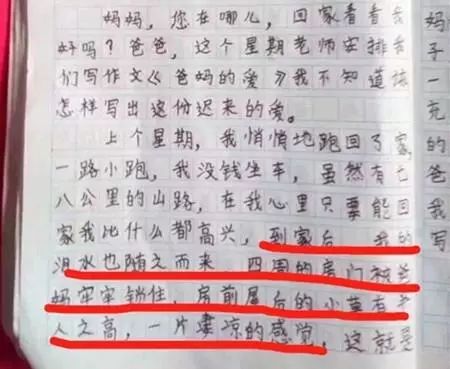 妈妈，您在哪儿，回家看看我 妈
好吗？爸爸，这个星期老师安排我 子
们写作文《爸妈的爱》我不知道该 一
怎样写出这份迟来的爱。 充
上个星期，我悄悄地跑回了家， 的
一路小跑，我没钱坐车，虽然有七 爸
八公里的山路，在我心里只要能回 我
家我比什么都高兴，到家后 我的 写
泪水也随之而来 四周的房门被爸
妈牢牢锁住，房前屋后的小草有
人之高，一片凄凉的感觉，这就是